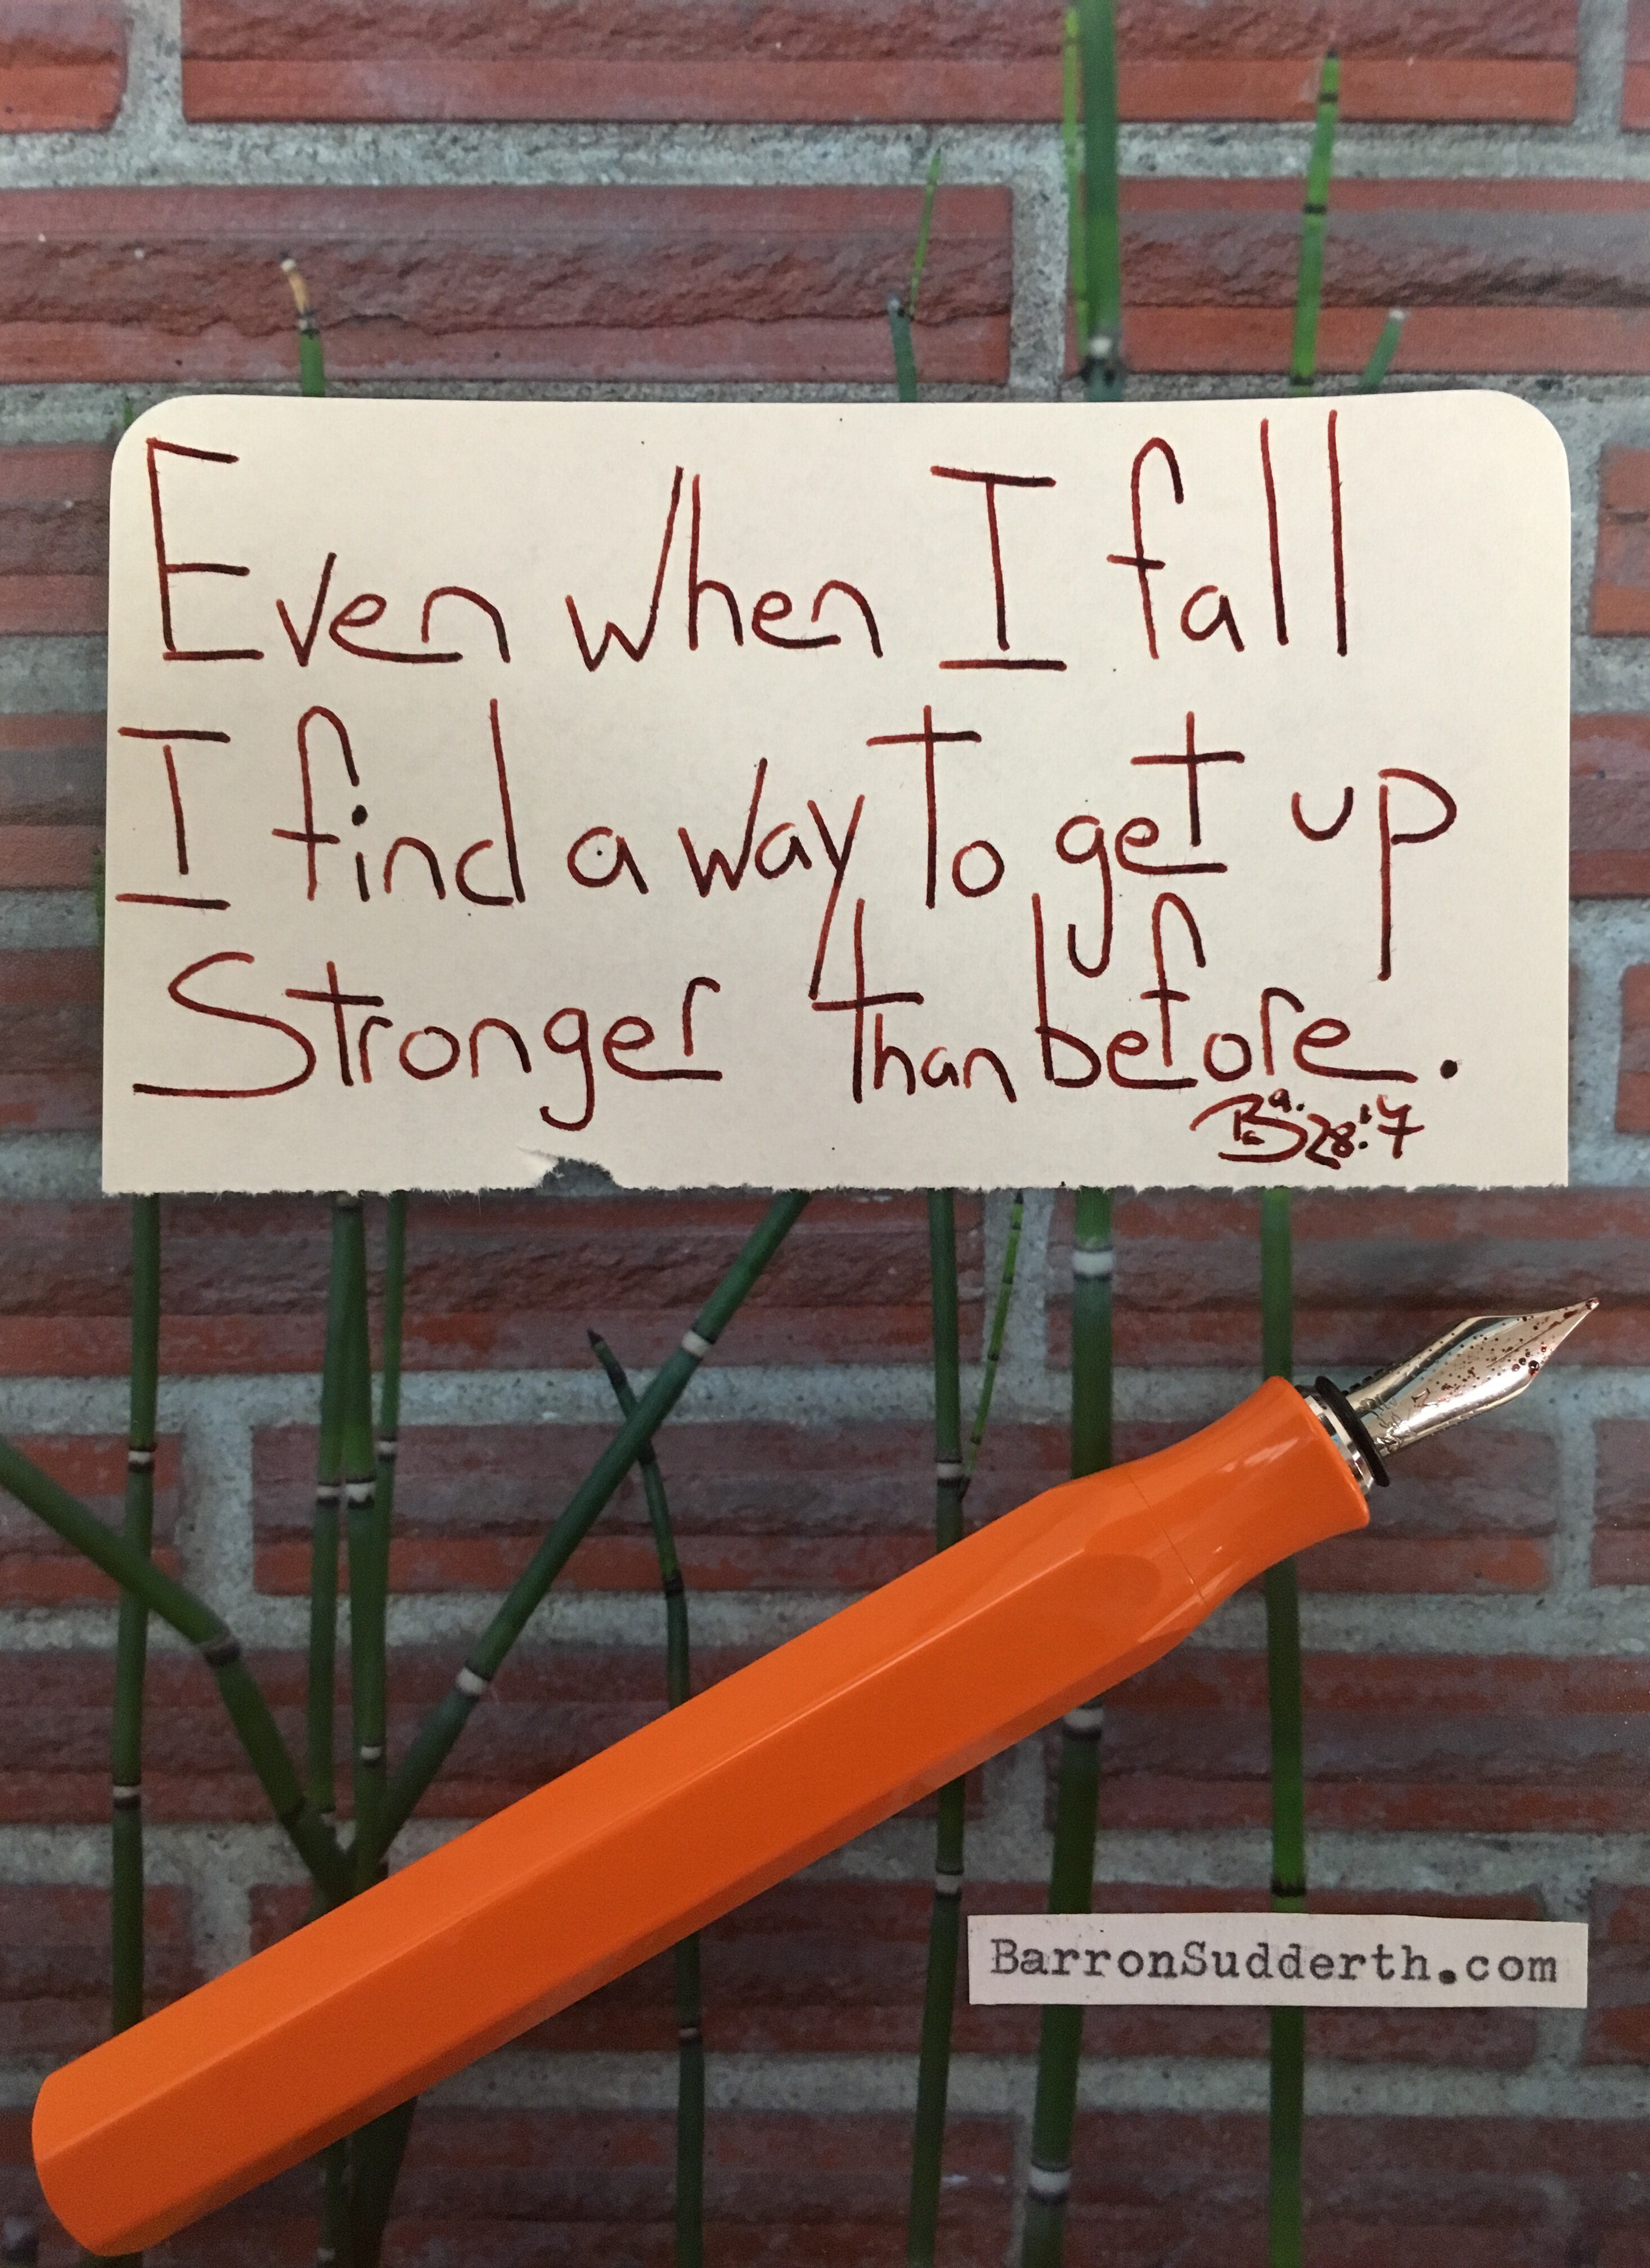 Even when I fall
I find a way to get up
Stronger than before.
BarronSudderth.com